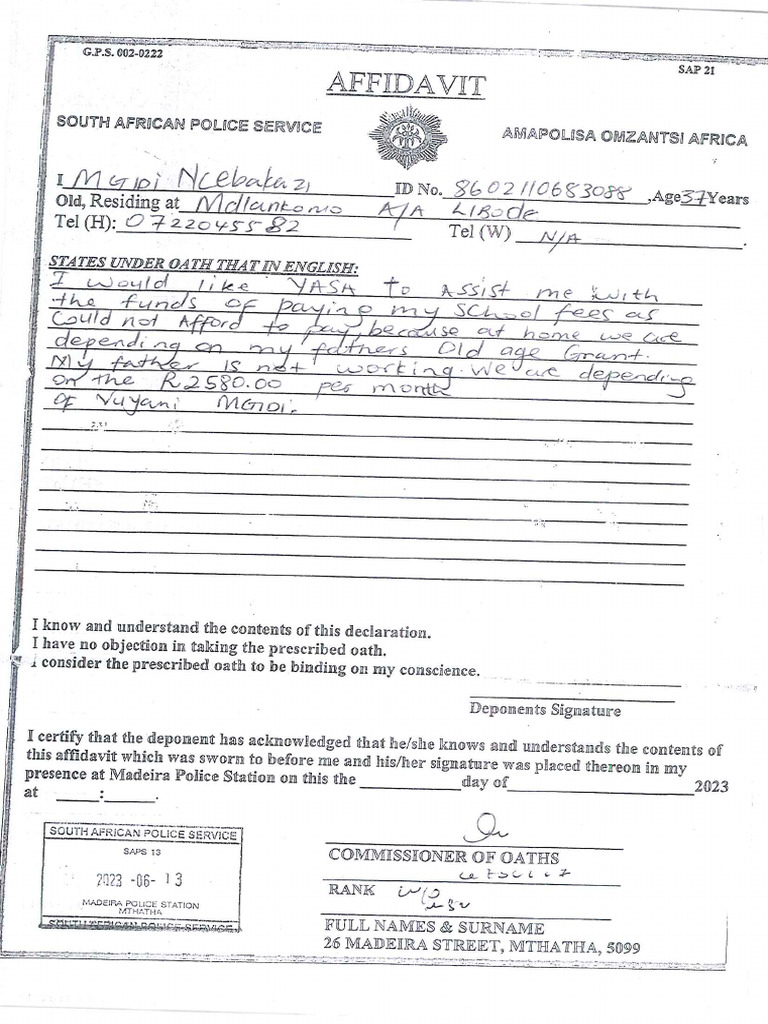 G.P.S. 002-0222
SAP 21
AFFIDAVIT
SOUTH AFRICAN POLICE SERVICE
AMAPOLISA OMZANTSI AFRICA
I MGIDI Ncebakazi ID No. 8602110683088, Age 37 Years
Old, Residing at Mdlankomo A/A LIBODE
Tel (H): 0722045582 Tel (W) N/A
STATES UNDER OATH THAT IN ENGLISH:
I would like YASA to Assist me with
the funds of paying my School fees as
Could not Afford to pay because at home we are
depending on my fathers Old age Grant.
My father is not working. We are depending
on the R2580.00 per month
of Vuyani MGIDI.
I know and understand the contents of this declaration.
I have no objection in taking the prescribed oath.
I consider the prescribed oath to be binding on my conscience.
Deponents Signature
I certify that the deponent has acknowledged that he/she knows and understands the contents of
this affidavit which was sworn to before me and his/her signature was placed thereon in my
presence at Madeira Police Station on this the ________ day of ________ 2023
at ____:____.
SOUTH AFRICAN POLICE SERVICE
SAPS 13
2023 -06- 13
MADEIRA POLICE STATION
MTHATHA
SOUTH AFRICAN POLICE SERVICE
COMMISSIONER OF OATHS
RANK W/O
FULL NAMES & SURNAME
26 MADEIRA STREET, MTHATHA, 5099